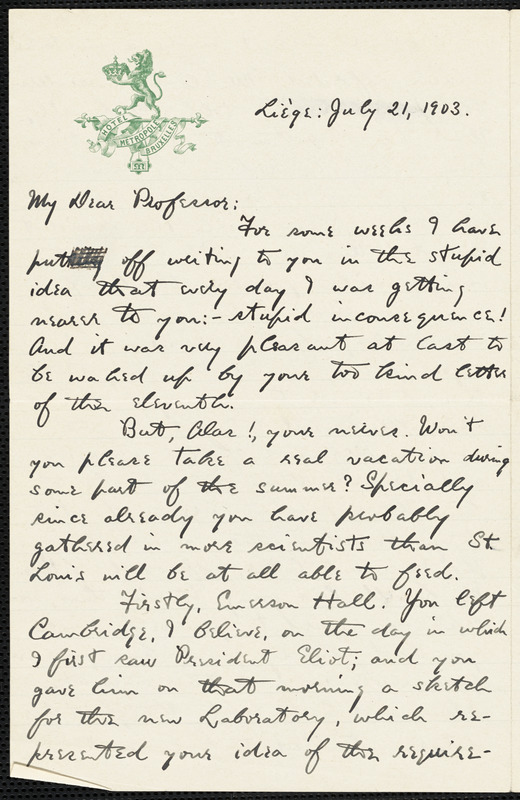 HOTEL
METROPOLE
BRUXELLES
Liège: July 21, 1903.
My Dear Professor:
For some weeks I have
put off writing to you in the stupid
idea that every day I was getting
nearer to you:- stupid inconsequence!
And it was very pleasant at last to
be waked up by your too kind letter
of the eleventh.
But, Alas!, your nerves. Won't
you please take a real vacation during
some part of the summer? Specially
since already you have probably
gathered in more scientists than St.
Louis will be at all able to feed.
Firstly, Emerson Hall. You left
Cambridge, I believe, on the day in which
I first saw President Eliot; and you
gave him on that morning a sketch
for the new Laboratory, which re-
presented your idea of the require-